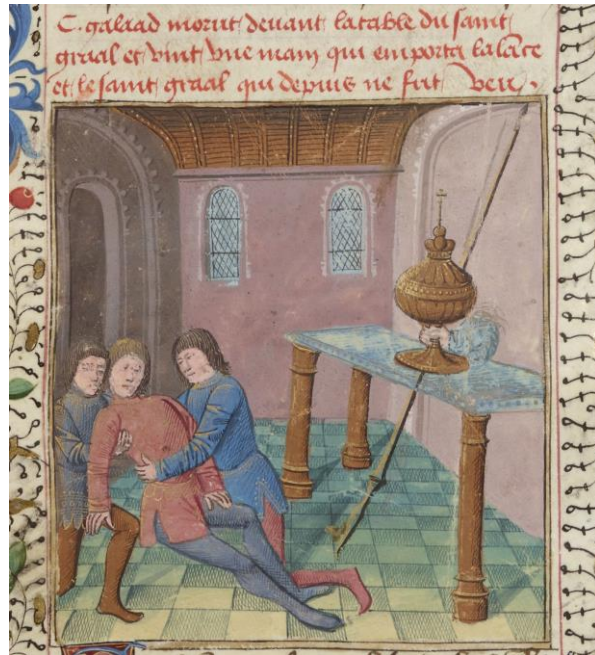 C. galaad morut devant la table du saint
graal et vint une main qui emporta la lãce
et le saint graal qui depuis ne fut veu.